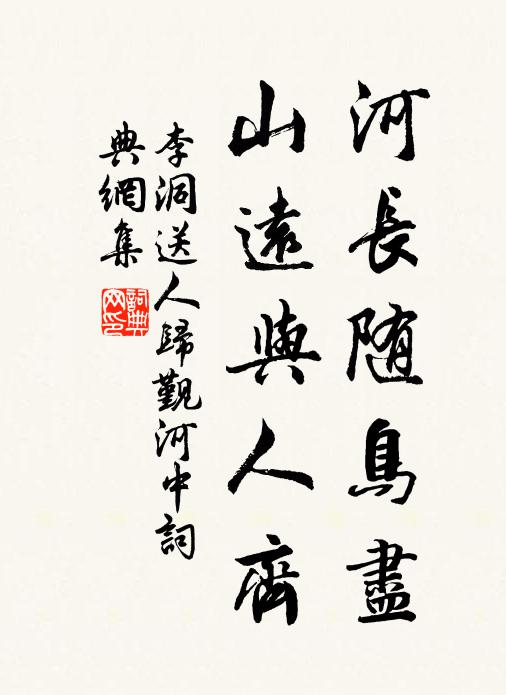 河長随鳥盡
山遠與人齊
李洞送人歸觐河中詞
典網集
詞典
网印